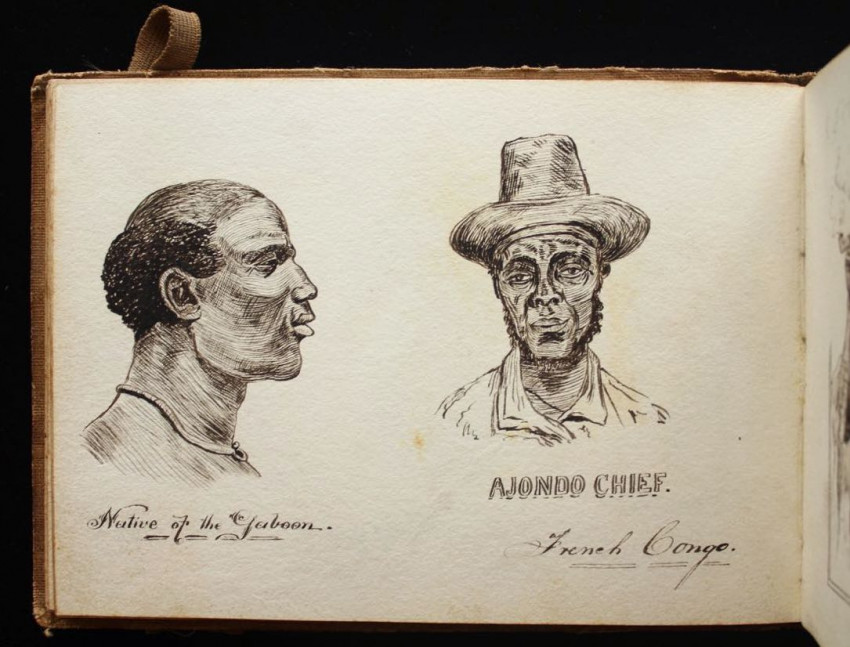 Native of the Gaboon.
AJONDO CHIEF.
French Congo.